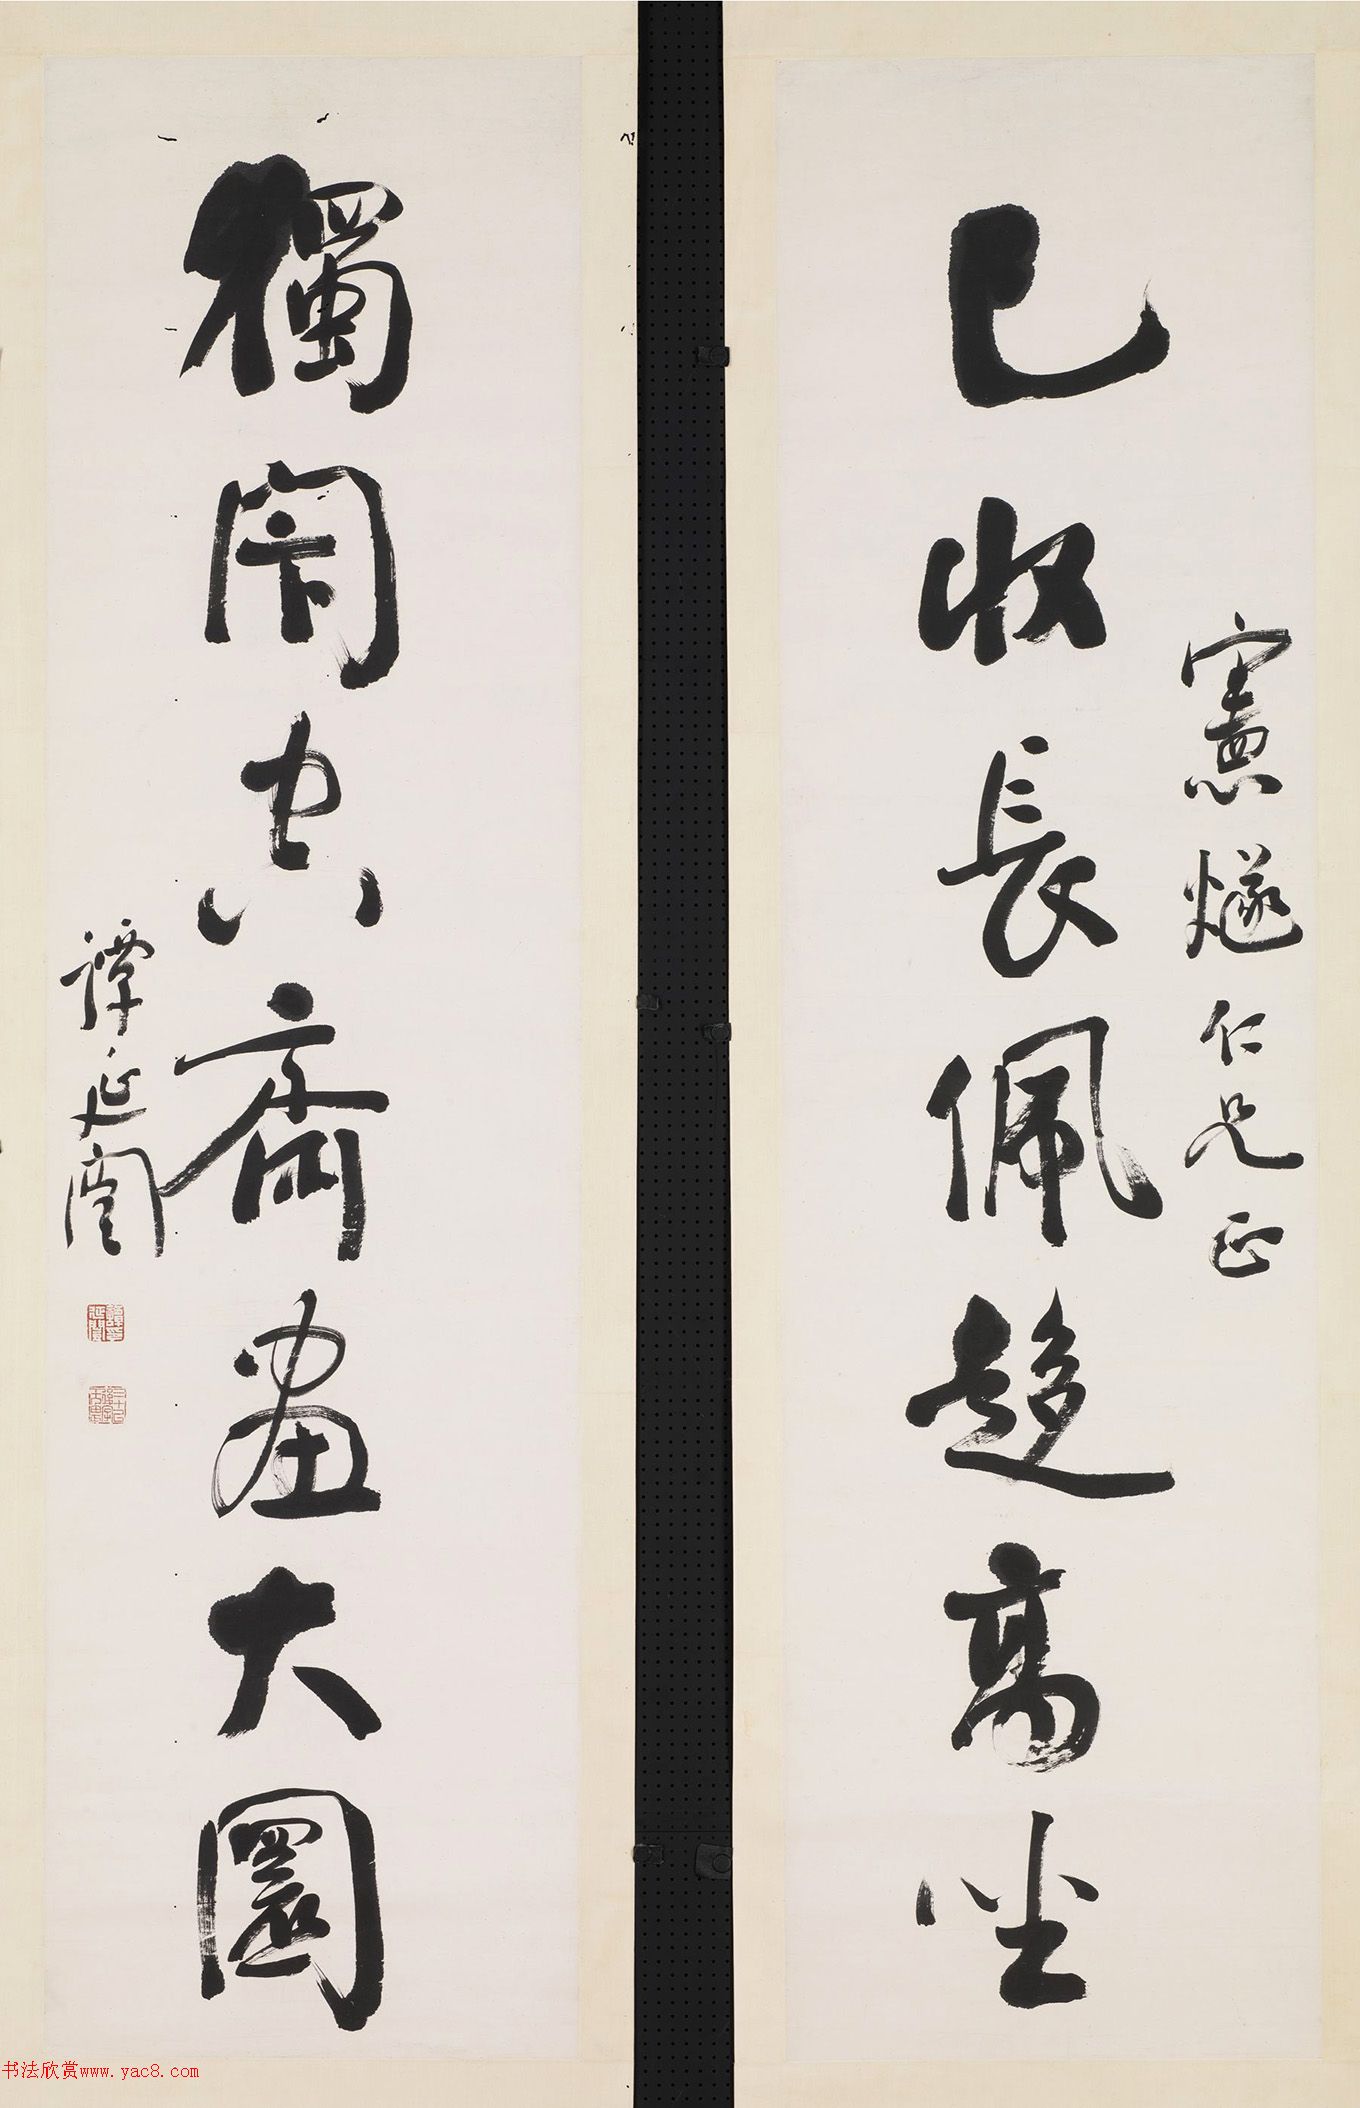 憲燧仁兄正
已收長佩趨高坐
獨閉空齋畫大圜
譚延闓
书法欣赏www.yac8.com